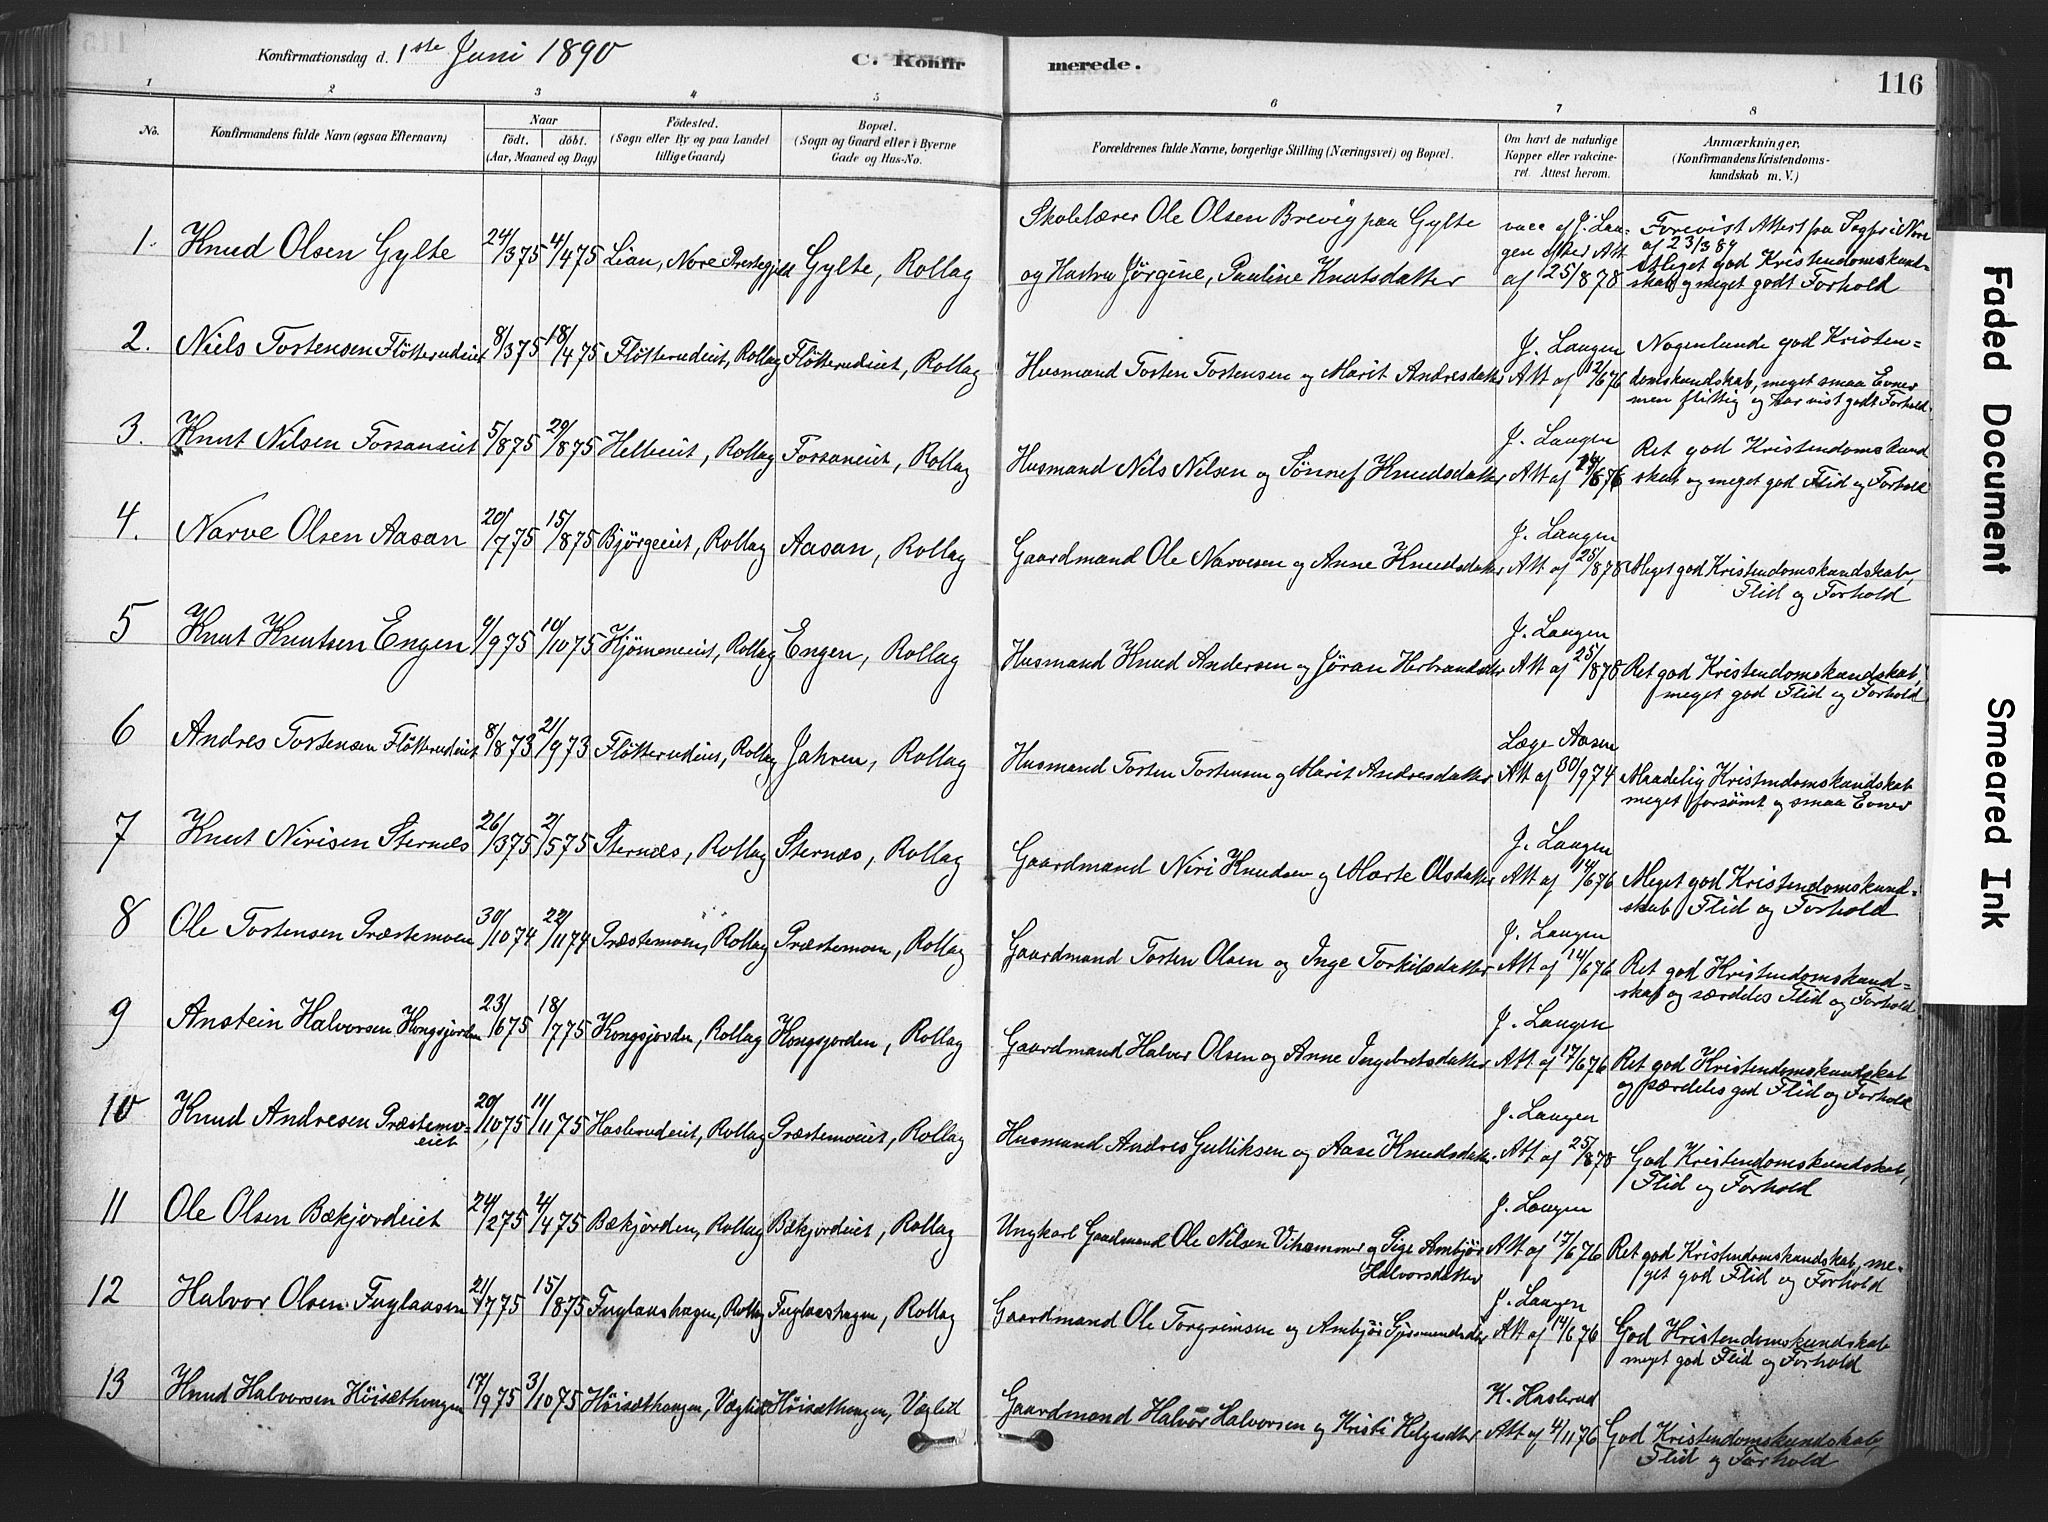 Konfirmationsdag d. 1ste Juni 1890
C. Konfirmerede.
116
1 2 3 4 5 6 7 8
No.
Konfirmandens fulde Navn (ogsaa Efternavn)
Naar
født. døbt.
(Aar, Maaned og Dag)
Fødested.
(Sogn eller By og paa Landet
tillige Gaard)
Bopæl.
(Sogn og Gaard eller i Byerne
Gade og Hus-No.
Forældrenes fulde Navne, borgerlige Stilling (Næringsvei) og Bopæl.
Om havt de naturlige
Kopper eller vakcine-
ret. Attest herom.
Anmærkninger.
(Konfirmandens Kristendoms-
kundskab m. V.)
1. Knud Olsen Gylte 24/3 75 4/4 75 Lian, Nore Prestegjeld Gylte, Rollag
Skolelærer Ole Olsen Brevig paa Gylte
og Hustru Jørgine, Pauline Knutsdatter
vacc af J. Lau-
gen efter Att
af 25/8 78
Forevist Attest fra Sogpr i Nore
af 23/3 89
Meget god Kristendomskund-
skab og meget godt Forhold
2. Niels Torstensen Fløtterudeiet 8/3 75 18/4 75 Fløtterudeiet, Rollag Fløtterudeiet, Rollag
Husmand Torsten Torstensen og Marit Andresdatter
J. Laugen
Att af 12/6 76
Nogenlunde god Kristen-
domskundskab, meget smaa Evner
men flittig og har vist godt Forhold.
3. Knut Nilsen Forsaneiet 5/8 75 29/8 75 Helleeiet, Rollag Forsaneiet, Rollag
Husmand Nils Nilsen og Sønnef Knudsdatter
J. Laugen
Att af /6 76
Ret god Kristendomskund
skab og meget god Flid og Forhold
4. Narve Olsen Aasan 20/7 75 15/8 75 Bjørgeeiet, Rollag Aasan, Rollag
Gaardmand Ole Narvesen og Anne Knudsdatter
J. Laugen
Att af 25/8 78
Meget god Kristendomskundskab,
Flid og Forhold
5 Knut Knutsen Engen 9/9 75 10/10 75 Kjømeneiet, Rollag Engen, Rollag
Husmand Knud Andersen og Jøran Herbrandsdtter
J. Laugen
Att af 25/8 78
Ret god Kristendomskundskab,
meget god Flid og Forhold
6 Andres Torstensen Fløtterudeiet 8/8 73 21/9 73 Fløtterudeiet, Rollag Jahren, Rollag
Husmand Torsten Torstensen og Marit Andresdatter
Læge Aasen
Att af 30/9 74
Maadelig Kristendomskundskab
meget forsømt og smaa Evner
7 Knut Nirisen Sternæs 26/3 75 2/5 75 Sternæs, Rollag Sternæs, Rollag
Gaardmand Niri Knudsen og Marte Olsdatter
J. Laugen
Att af 14/6 76
Meget god Kristendomskund-
skab Flid og Forhold
8 Ole Torstensen Præstemoen 30/10 74 22/11 74 Præstemoen, Rollag Præstemoen, Rollag
Gaardmand Torsten Olsen og Inge Torkilsdatter
J. Laugen
Att af 14/6 76
Ret god Kristendomskund-
skab og særdeles Flid og Forhold
9 Anstein Halvorsen Kongsjorden 23/6 75 18/7 75 Kongsjorden, Rollag Kongsjorden, Rollag
Gaardmand Halvor Olsen og Anne Ingebretsdatter
J. Laugen
Att af 17/6 76
Ret god Kristendomskundskab
og særdeles god Flid og Forhold
10 Knud Andresen Præstemo-
eiet 20/10 75 11/11 75 Haslerudeiet, Rollag Præstemoeiet, Rollag
Husmand Andres Gulliksen og Aase Knudsdatt.
J. Laugen
Att af 25/8 78
God Kristendomskundskab,
Flid og Forhold
11 Ole Olsen Bækjordeiet 24/2 75 4/4 75 Bækjorden, Rollag Bækjordeiet, Rollag
Ungkarl Gaardmand Ole Nilsen Vihammer og Pige Ambjør
Halvorsdatter
J. Laugen
Att af 17/6 76
Ret god Kristendomskundskab, me-
get god Flid og Forhold
12 Halvor Olsen Fuglaasen 21/7 75 15/8 75 Fuglaashagen, Rollag Fuglaashagen, Rollag
Gaardmand Ole Torgrimsen og Ambjør Gjermundsdtr
J. Laugen
Att af 14/6 76
God Kristendomskundskab
meget god Flid og Forhold
13 Knud Halvorsen Høisæthaugen 17/9 75 3/10 75 Høisæthaugen, Væglid Høisæthaugen, Væglid
Gaardmand Halvor Halvorsen og Kristi Helgesdtr
K. Haslerud
Att af 4/11 76
God Kristendomskundskab,
Flid og Forhold
Faded Document
Smeared Ink